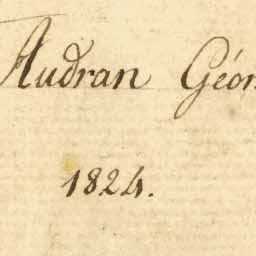 Audran Géom
1824.